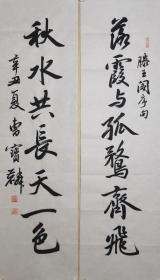 滕王阁序句
落霞与孤鹜齊飛
秋水共長天一色
辛丑夏雷寶麟